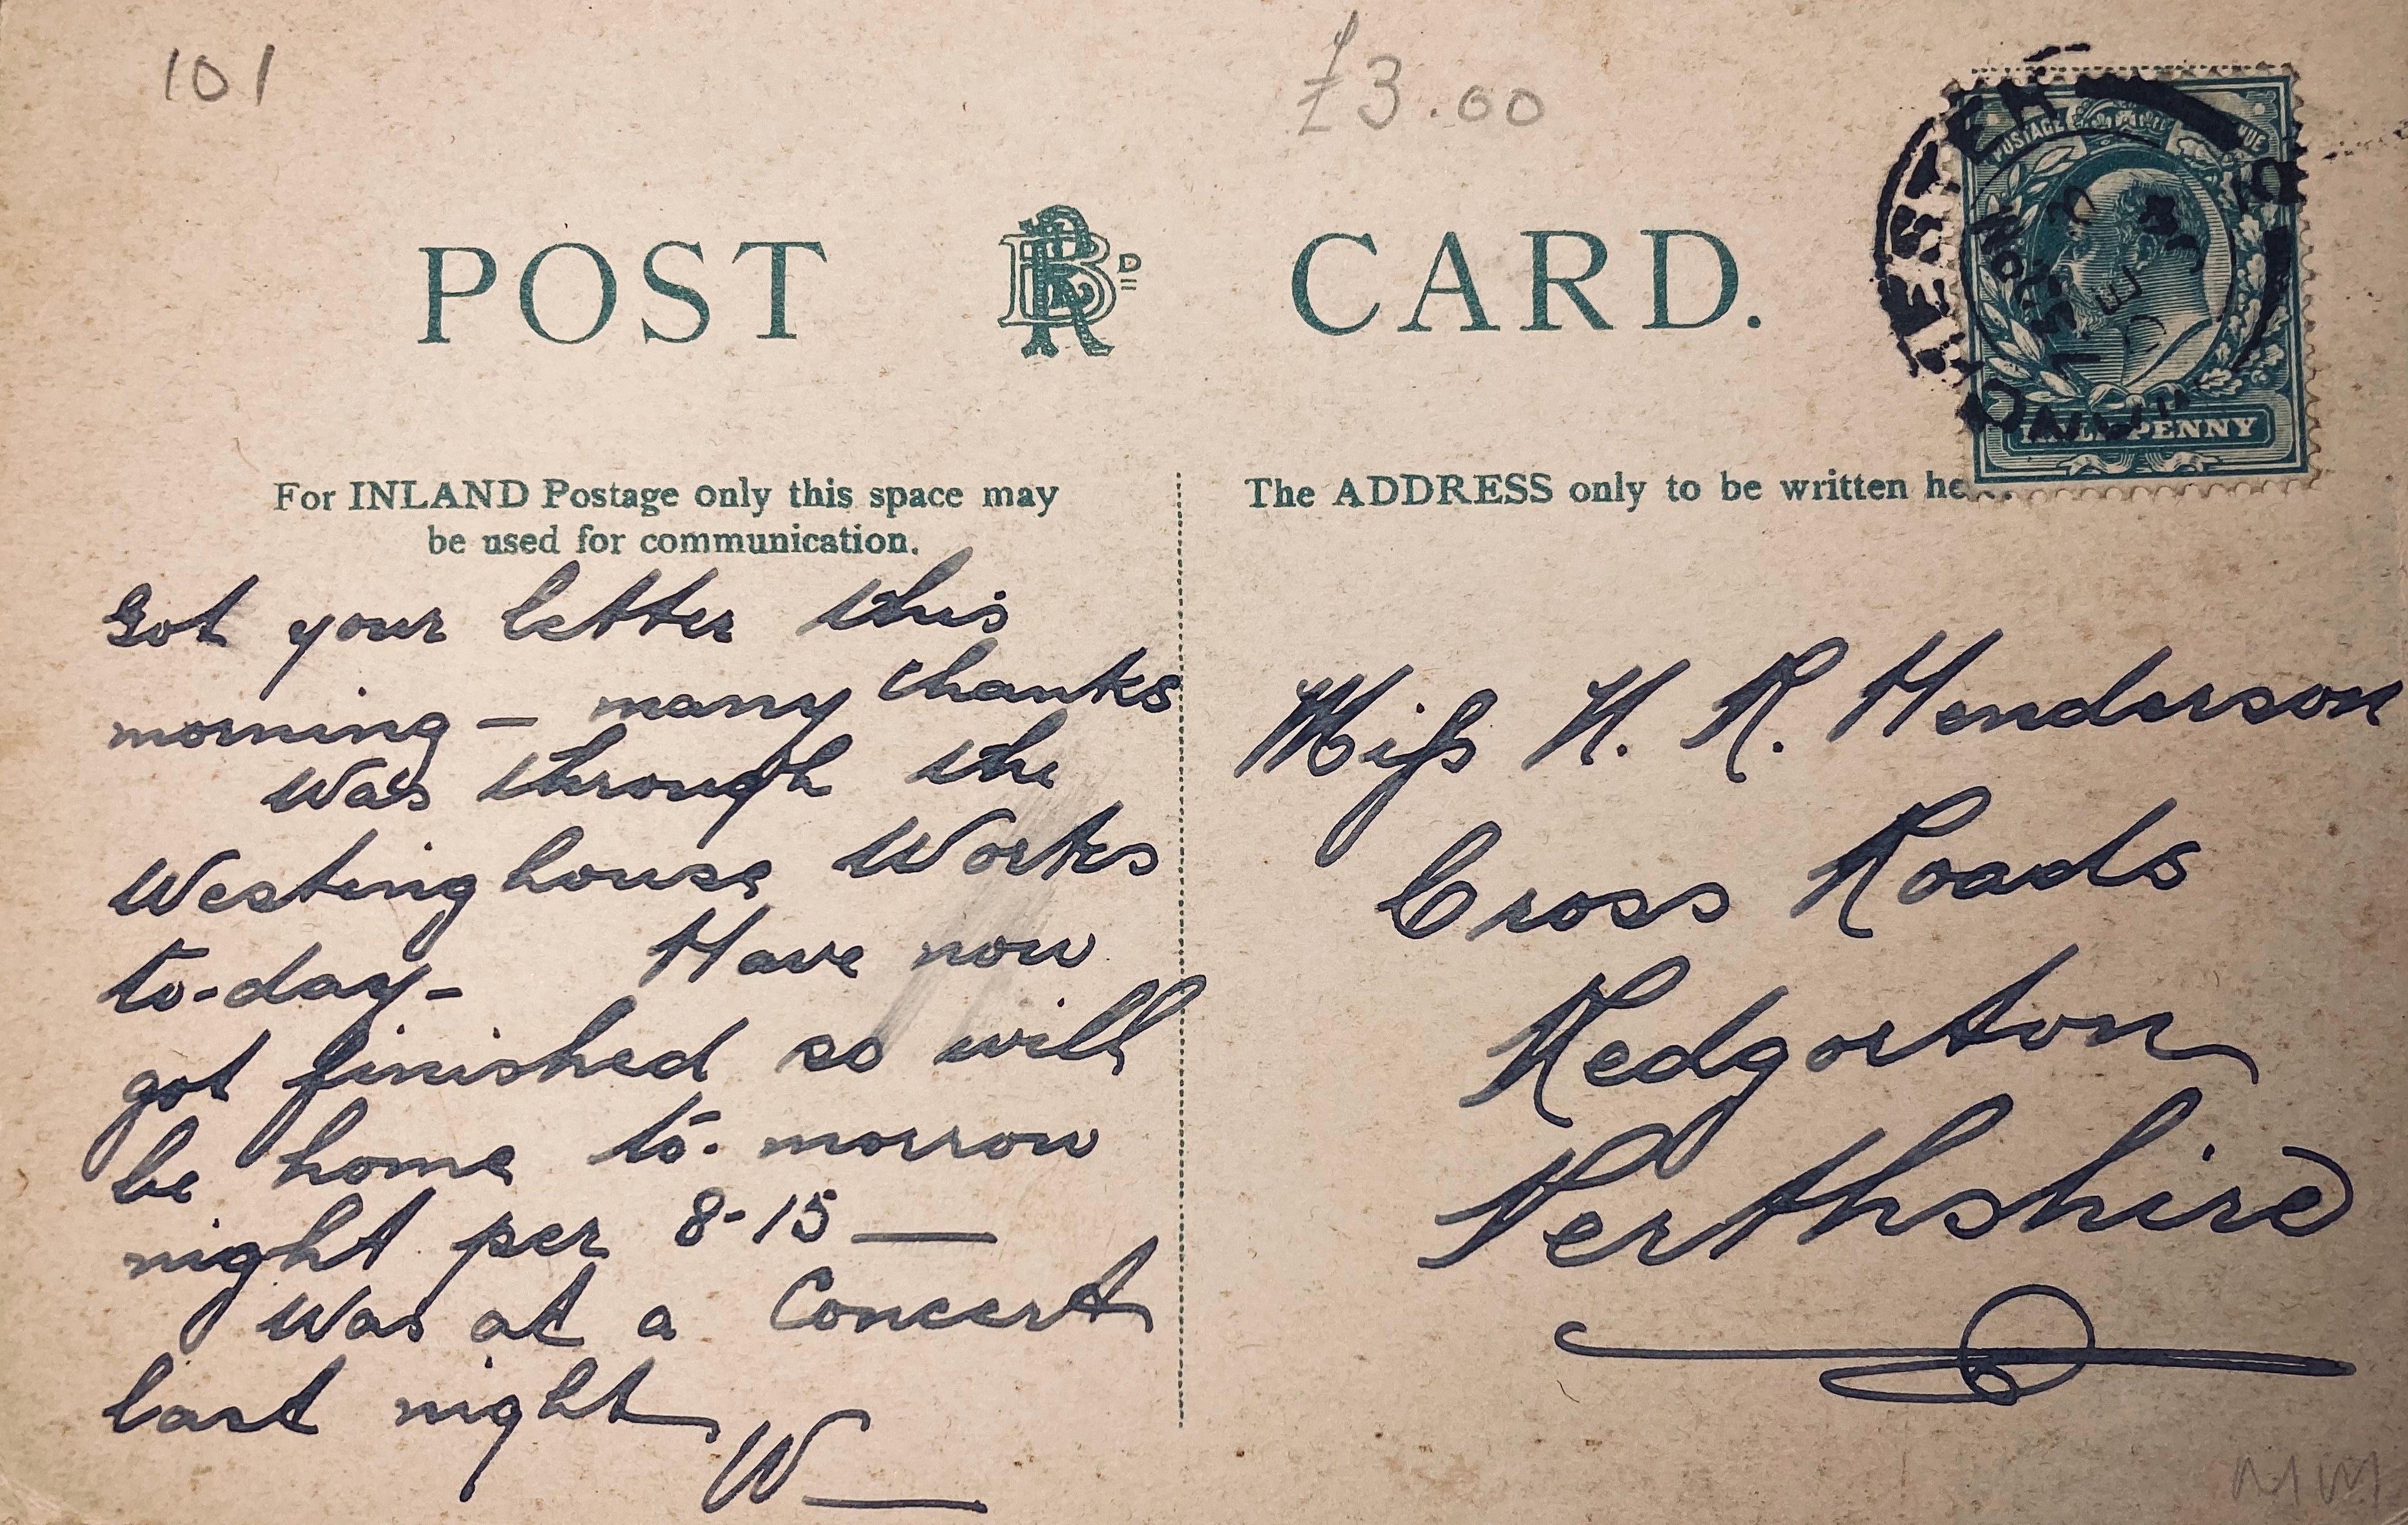 101
£3.00
POST CARD.
For INLAND Postage only this space may
be used for communication.
The ADDRESS only to be written he
POSTAGE
HALFPENNY
Got your letter this
morning — many thanks
Was through the
Westinghouse Works
to-day- Have now
got finished so will
be home to-morrow
night per 8-15 —
Was at a Concert
last night
W —
Miss N. R. Henderson
Cross Roads
Redgorton
Perthshire